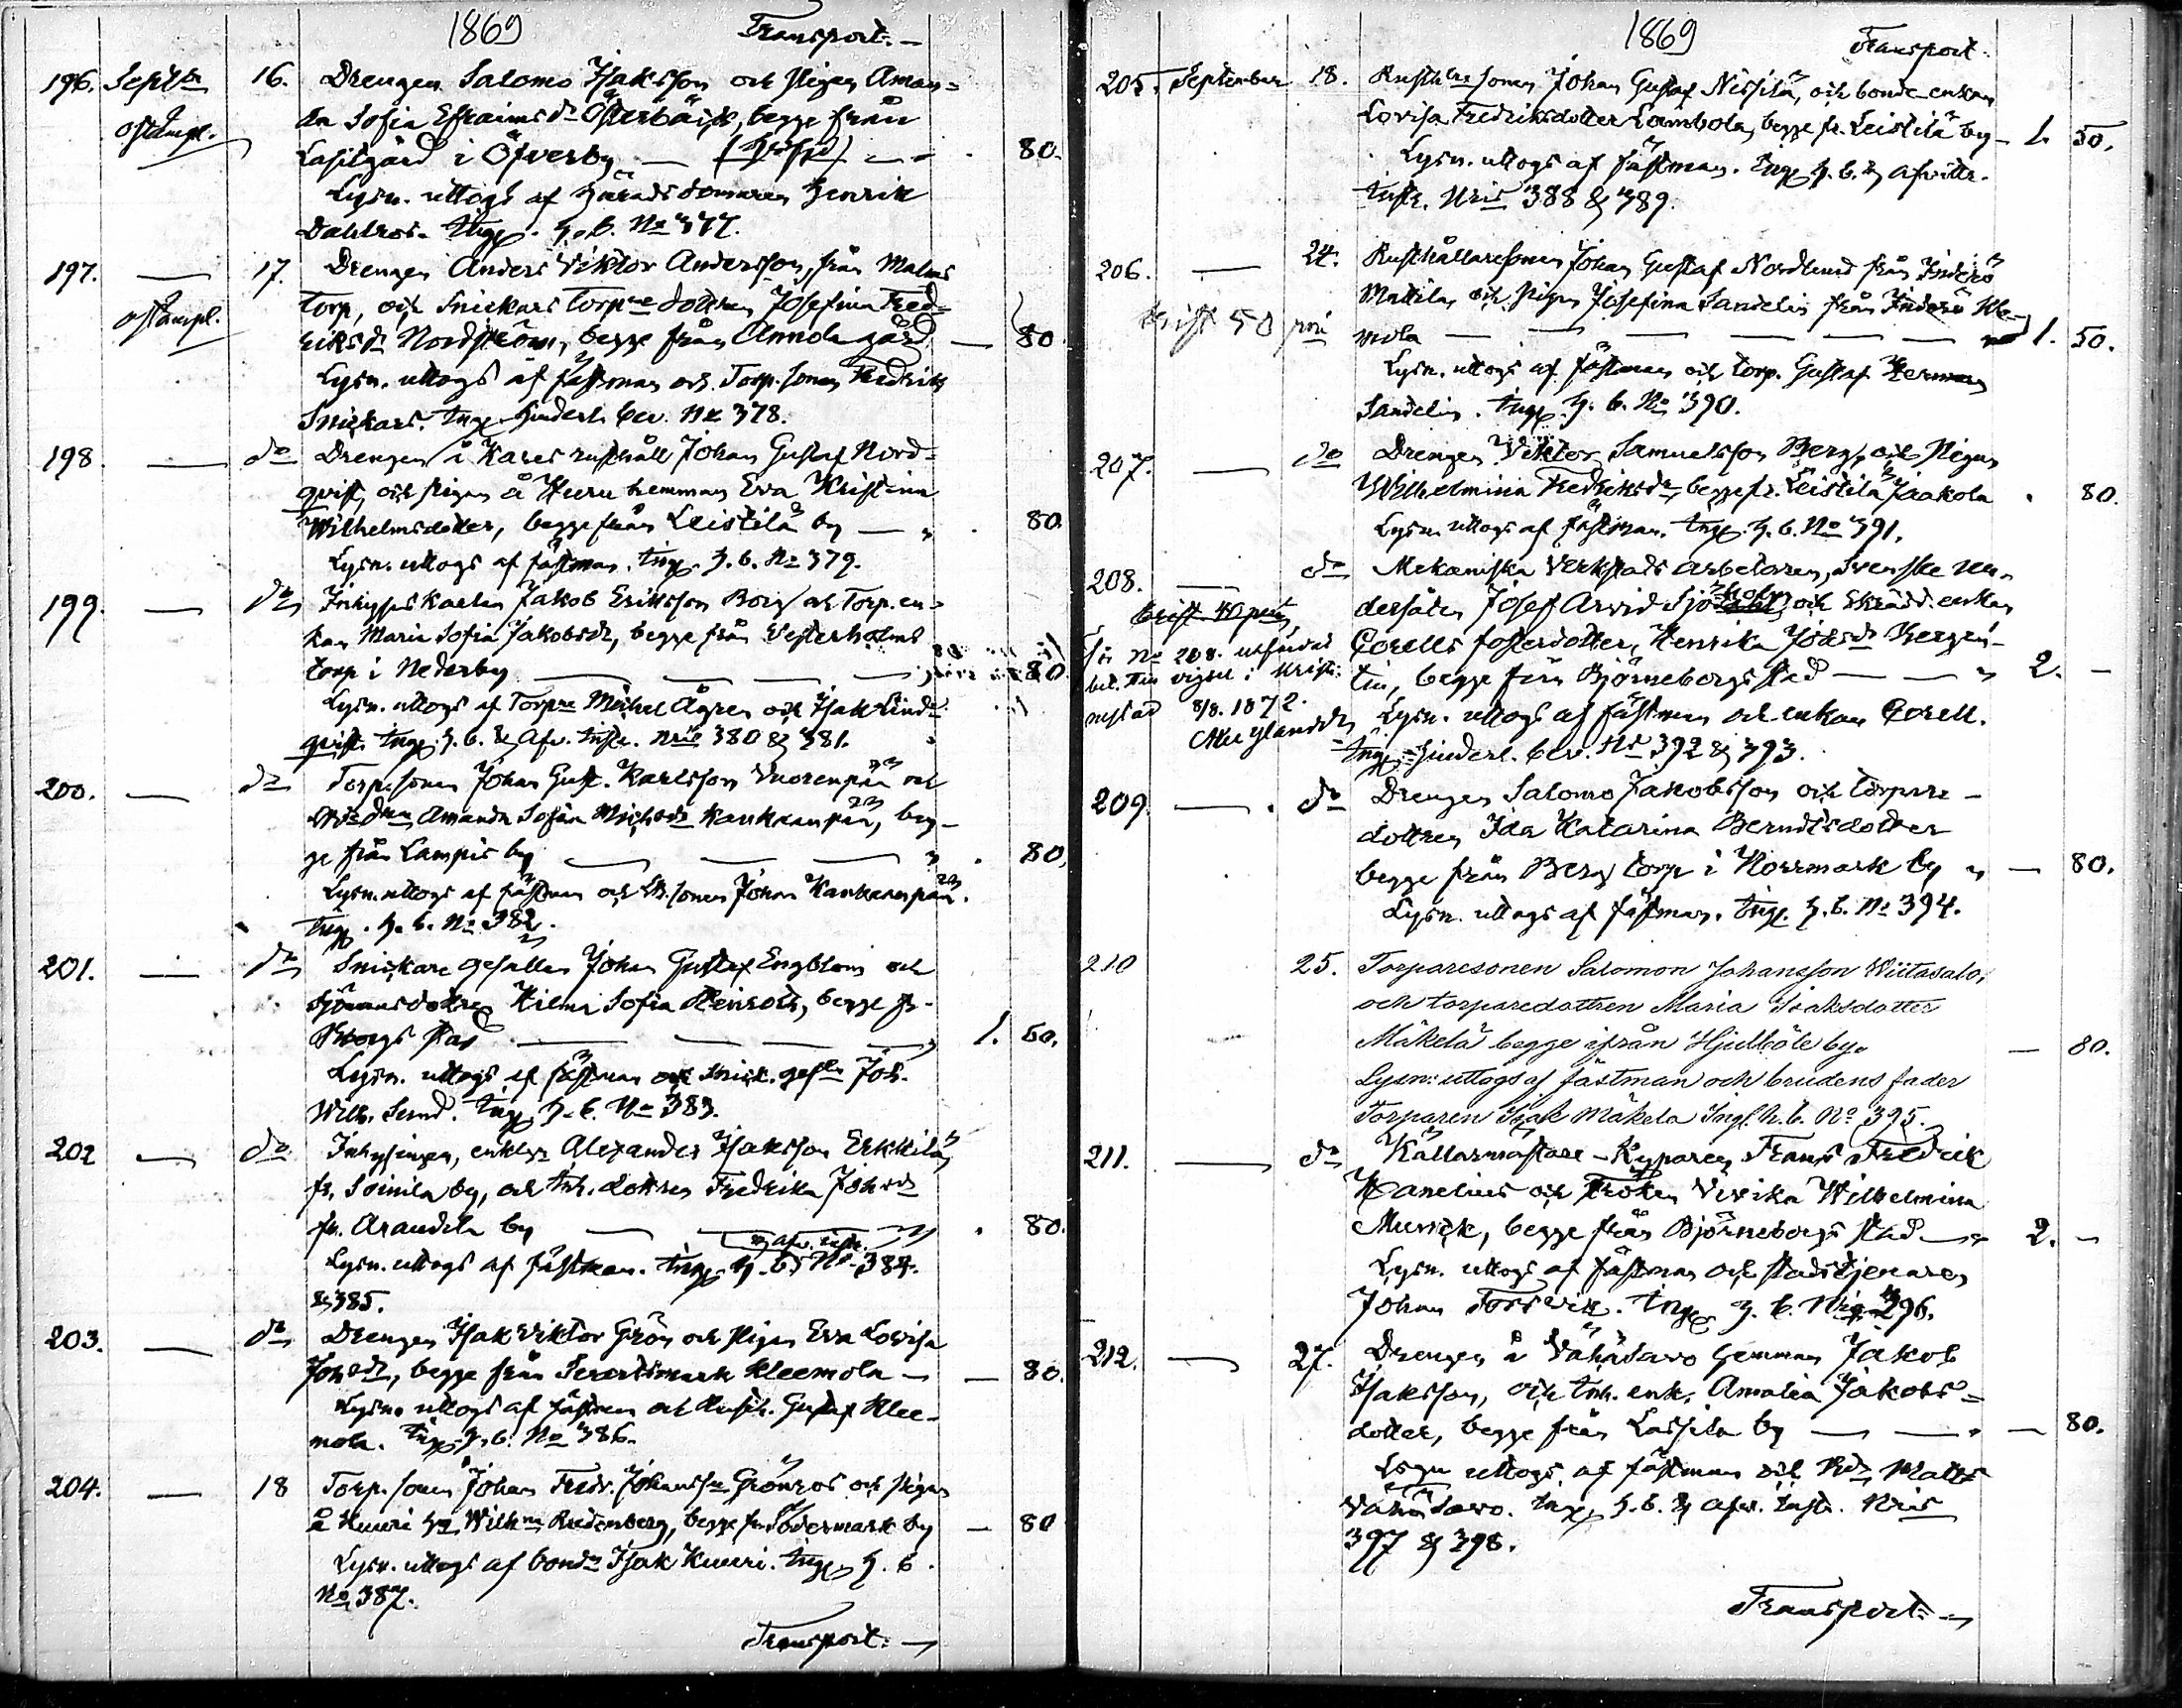 1869 Transport.
196. Septbr 16. Drengen Salomo Isaksson och pigan Aman-
ostämpl. da Sofia Efraimsdr Österbäck, begge från
Lasilgård i Öfverby 80.
Lysn. uttogs af Häradsdomaren Henrik
Dahlros. Ingg. h. b. No 377.
197. 17. Drengen Anders Viktor Andersson, från Malms
ostämpl. torp, och Snickars torpredottren Josefina Fred-
riksdr Nordström, begge från Annola gård 80
Lysn. uttogs af fästman och Torp. sonen Fredrik
Snickars. Ingg. Hinderl. bev. No 378.
198. do Drengen å Kares rusthåll Johan Gustaf Nord-
qvist, och pigan å Kuru hemman Eva Kristina
Wilhelmsdotter, begge från Leistilä by 80.
Lysn. uttogs af fästman. Ingg. h. b. No 379.
199. do Inhyses karlen Jakob Eriksson Borg och Torp. en-
kan Maria Sofia Jakobsdr, begge från Vesterholms
torp i Nederby 80.
Lysn. uttogs af Torpre Michel Ågren och Isak Lind-
qvist. Ingg. h. b. & Afv. Inste. Nris 380 & 381.
200. do Torp. sonen Johan Gust. Karlsson Vuorenpää och
Amanda Sofia Michsdr Kankaanpää, beg-
ge från Lampis by 80.
Lysn. uttogs af fästman och sonen Johan Kankaanpää.
Ingg. h. b. No 382.
201. do Snickare gesällen Johan Gustaf Engblom och
Sjömansdottren Hilma Sofia begge fr.
Bborgs stad 1. 60.
Lysn. uttogs af fästman och Snick. geslln Joh.
Wilh. Sund. Ingg. h. b. No 383.
202 do Inhysingen, enkl. Alexander Isaksson Erkkilä
fr. Soinila by, och Inh. dottren Fredrika Johsdr
fr. Arandila by 80.
& afv. inste.
Lysn. uttogs af fästman. Ingg. h. b. No 384.
& 385.
203. do Drengen Isak Viktor Grön och pigan Eva Lovisa
Johsdr, begge från Sverdsmark Kleemola 80.
Lysn. uttogs af fästman och Rusth. Gustaf Klee-
mola. Ingg. h. b. No 386.
204. 18 Torp. sonen Johan Fredr. Johansson Grönroos och pigan
å Kuuri Wilhna Rudenberg, begge fr. Södermark by 80
Lysn. uttogs af bondn Isak Kuuri. Ingg. h. b.
No 387.
Transport.
1869 Transport.
205. September 18. Rusthre sonen Johan Gustaf Nissilä, och bonde-enkan
Lovisa Fredriksdotter Lambola, begge fr. Leistilä by 1. 50.
Lysn. uttogs af fästman. Ingg. h. b. & afvittr.
inste. Nris 388 & 389.
206. 24. Rusthållaresonen Johan Gustaf Nordlund från Inderö
Mattila, och pigan Josefina Sandelin från Inderö Kle-
brist 50 pni mola 1. 50.
Lysn. uttogs af fästman och torp. Gustaf Herman
Sandelin. Ingg. h. b. No 390.
207. do Drengen Viktor Samuelsson Berg, och pigan
Wilhelmina Fredriksdr, begge fr. Leistilä Jaakola 80.
Lysn. uttogs af fästman. Ingg. h. b. No 391.
208. do Mekaniska Verkstads arbetaren, Svenske un-
brist 40 pni dersåten Josef Arvid och Skrädd. enkan
No 208. utfärdat Corells fosterdotter, Henrika Johsdr Bergen-
bet. om vigsel i Kristi- tin, begge från Björneborgs stad 2. -
nestad 8/8. 1872. Lysn. uttogs af fästman och enkan Corell.
Ingg. Hinderl. bev. No 392 & 393.
209. do Drengen Salomo Jakobsson och torpare-
dottren Ida Katarina Berndtsdotter
begge från Berg torp i Norrmark by 80.
Lysn. uttogs af fästman. Ingg. h. b. No 394.
210 25. Torparesonen Salomon Johansson Wiitasalo,
och torparedottren Maria Isaksdotter
Mäkelä begge ifrån Hjulböle by. 80.
Lysn: uttogs af fästman och brudens fader
Torparen Isak Mäkelä Ingl. h. b. No 395.
211. do Källarmästare-Kyparen Frans Fredrik
Hanelius och Fröken Vivika Wilhelmina
Munck, begge från Björneborgs stad 2. -
Lysn. uttogs af fästman och stadstjenaren
Johan Forsvik. Ingg. h. b. No 396.
212. 27. Drengen å Vähäsavo hemman Jakob
Isaksson, och Inh. enk. Amalia Jakobs-
dotter, begge från Lassila by 80.
Lysn uttogs af fästman och Matts
Vähäsavo. Ingg. h. b. & afv. Inste. Nris
397 & 398.
Transport.